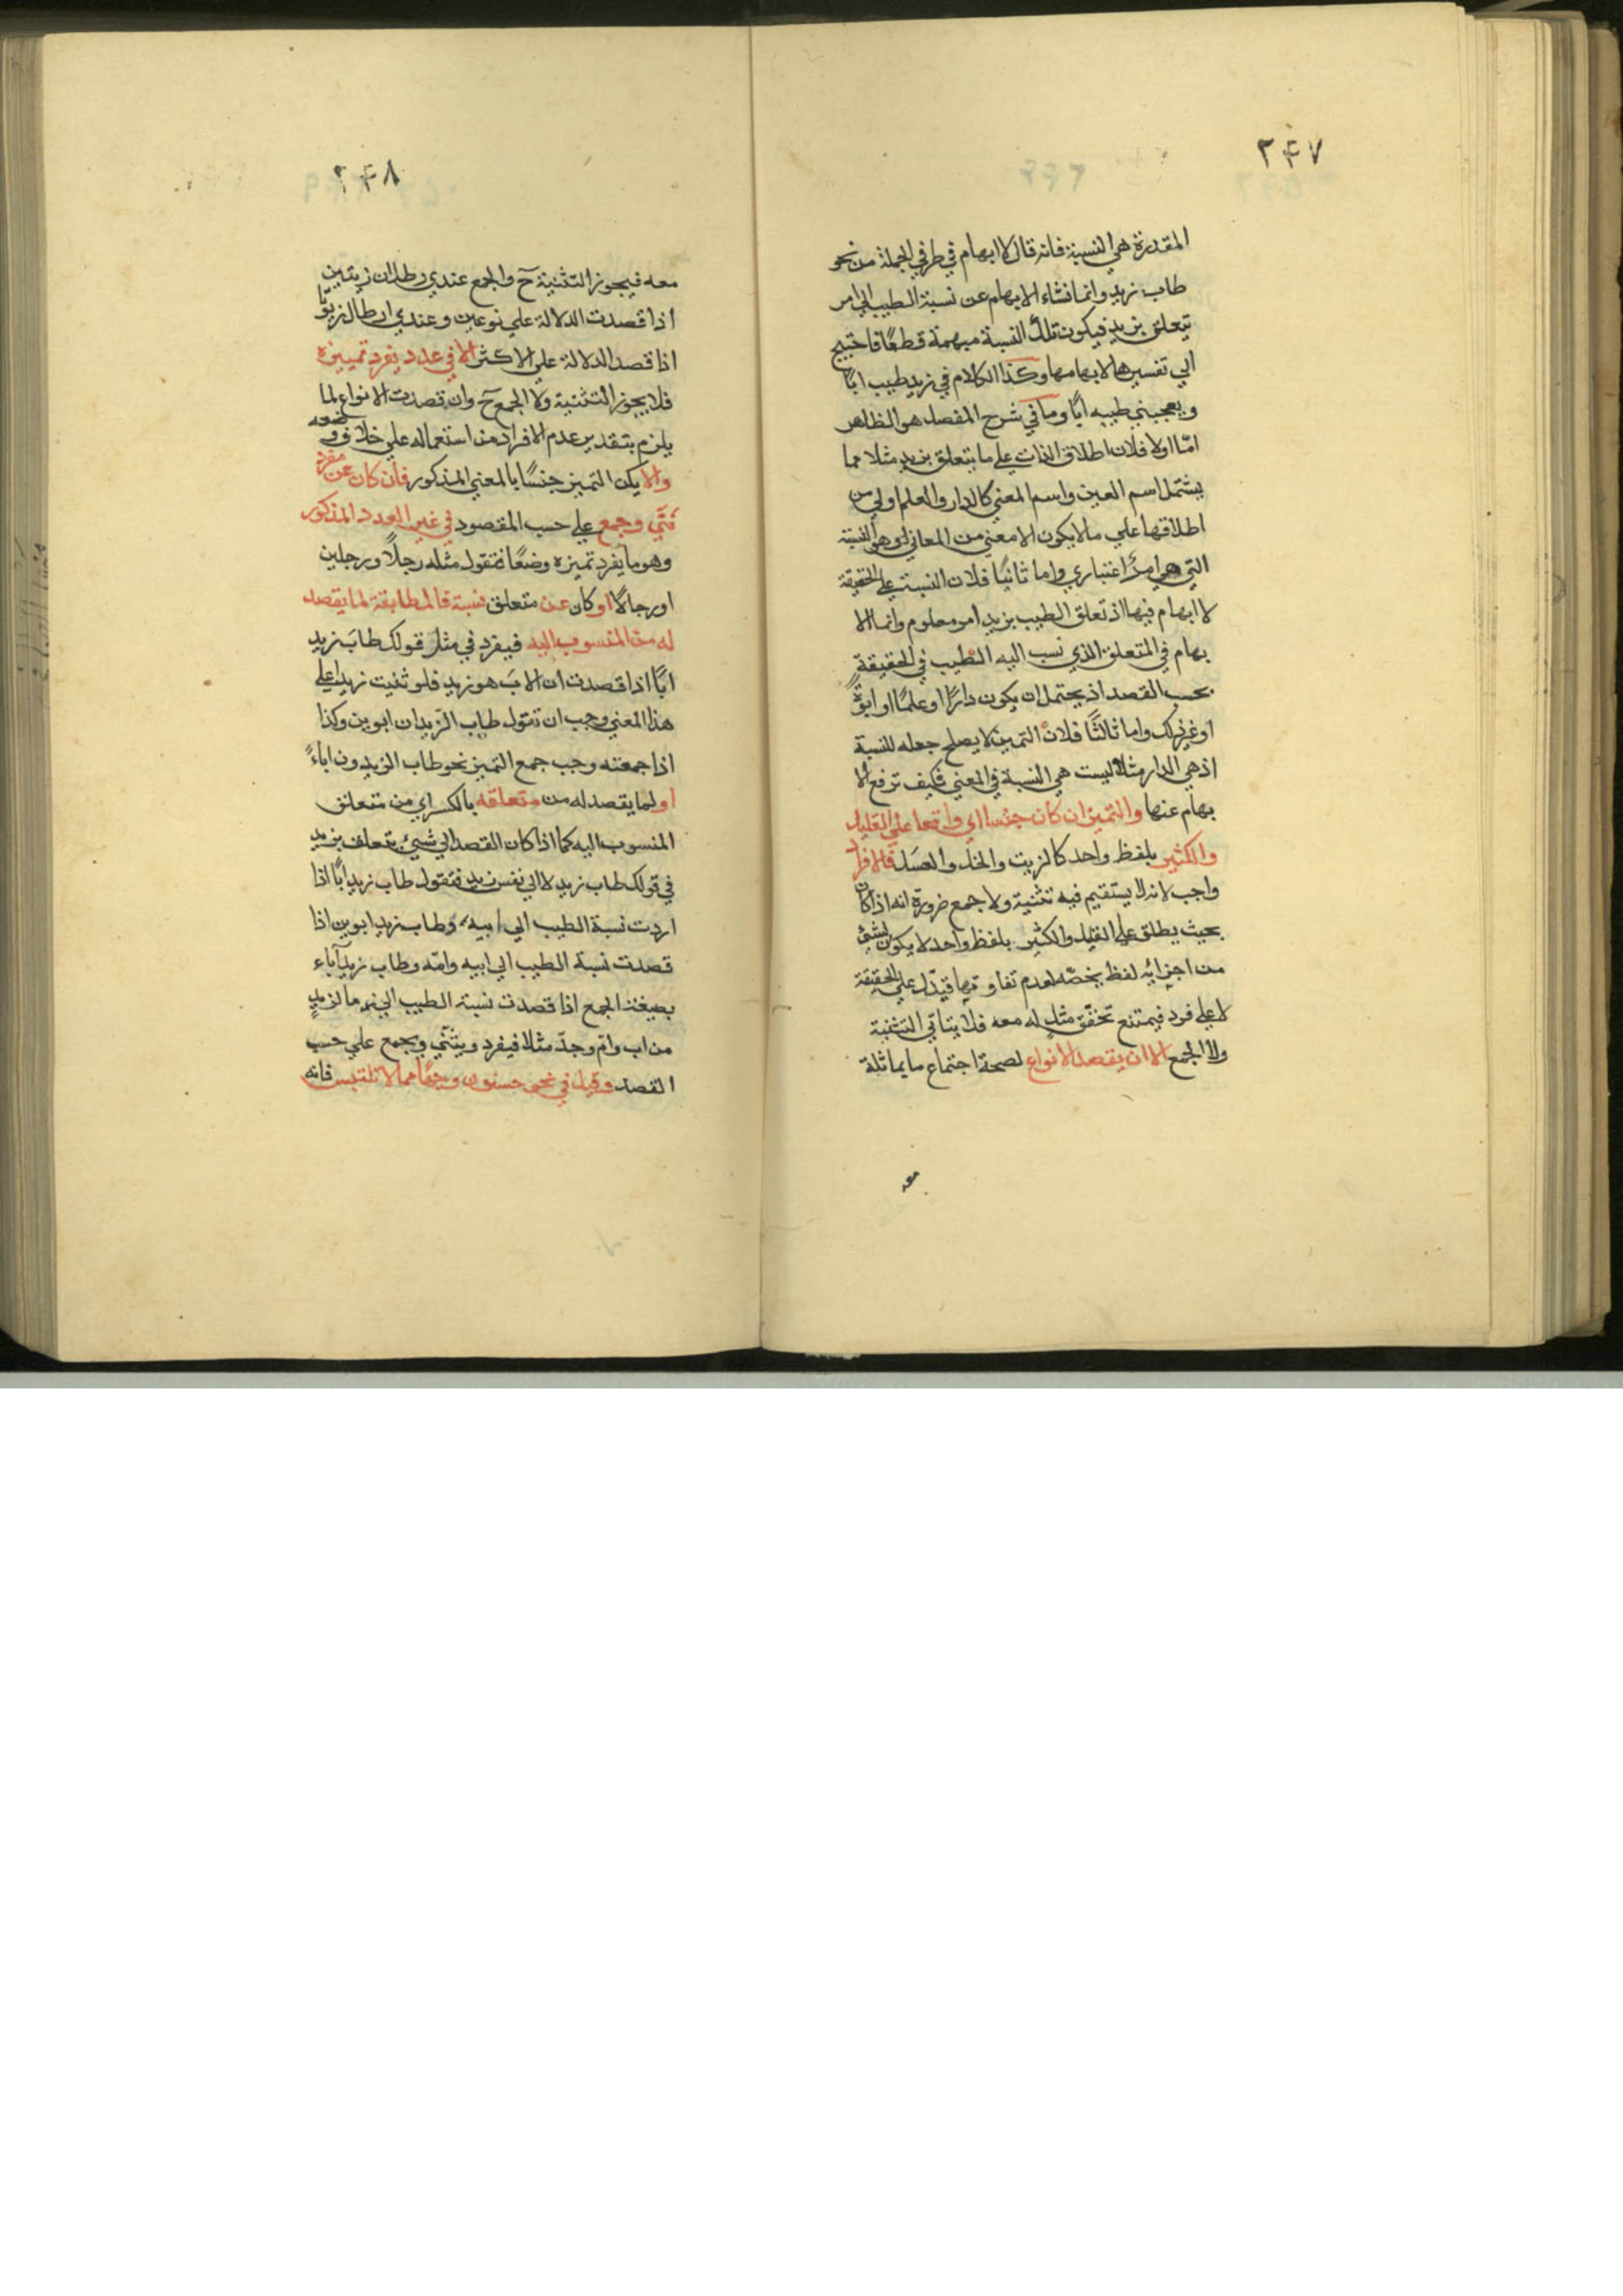 ٢٤٧
المقدرة هي النسبة فانه قال لا ابهام في طرفي الجملة من نحو
طاب زيد وانما نشاء الابهام عن نسبة الطيب الي امر
يتعلق بزيد فيكون تلك النسبة مبهمة قطعًا فاحتيج
الي تفسيرها لابهامها وكذا الكلام في زيد طيب ابًا
ويعجبني طيبه ابًا وما في شرح المفصل هو الظاهر
امّا اولا فلان اطلاق الذات علي ما يتعلق بزيد مثلا مما
يشتمل اسم العين واسم المعني كالدار والعلم اولي من
اطلاقها علي ما لا يكون الا معني من المعاني وهو النسبة
التي هي امرٌ اعتباري واما ثانيًا فلان النسبة علي الحقيقة
لا ابهام فيها اذ تعلق الطيب بزيد امر معلوم وانما الا
بهام في المتعلق الذي نسب اليه الطيب في الحقيقة
بحسب القصد اذ يحتمل ان يكون دارًا او علمًا او ابوّةً
او غير ذلك واما ثالثًا فلان التميز لا يصلح جعله للنسبة
اذ هي الدار مثلا ليست هي النسبة في المعني فكيف ترفع الا
بهام عنها والتميز ان كان جنسا اي واقعا علي القليل
والكثير بلفظ واحد كالزيت والخل والعسل فالافراد
واجب لانه لا يستقيم فيه تثنية ولا جمع ضرورة انه اذا كان
بحيث يطلق علي القليل والكثير بلفظ واحد لا يكون لشيئ
من اجزائه لفظ يخصّه لعدم تفاوتها فيدّل علي الحقيقة
لا علي فرد فيمتنع تحقّق مثلٍ له معه فلا يتاتي التثنية
ولا الجمع الا ان يقصد الانواع لصحة اجتماع ما يماثلة
معه
٢٤٨
معه فيجوز التثنية ح والجمع عندي رطلان زيتين
اذا قصدت الدلالة علي نوعين وعندي ارطال زيوتًا
اذا قصد الدلالة علي الاكثر الا في عدد يفرد تمييزه
فلا يجوز التثنية ولا الجمع ح وان قصدت الانواع لما
يلزم بتقدير عدم الافراد من استعماله علي خلاف وضعه
والا يكن التميز جنسًا بالمعني المذكور فان كان عن مفرد
ثنّي وجمع علي حسب المقصود في غير العدد المذكور
وهو ما يفرد تميزه وضعًا فتقول مثله رجلًا ورجلين
او رجالًا او كان عن متعلق نسبة فالمطابقة لما يقصد
له من المنسوب اليه فيفرد في مثل قولك طاب زيد
ابًا اذا قصدت ان الاب هو زيد فلو ثنيت زيدا علي
هذا المعني وجب ان تقول طاب الزيدان ابوين وكذا
اذا جمعته وجب جمع التميز نحو طاب الزيدون اباءً
او لما يقصد له من متعلقه بالكسر اي من متعلق
المنسوب اليه كما اذا كان القصد الي شيئ يتعلق بزيد
في قولك طاب زيد لا الي نفس زيد فتقول طاب زيد ابًا اذا
اردت نسبة الطيب الي ابيه وطاب زيد ابوين اذا
قصدت نسبة الطيب الي ابيه وامّه وطاب زيد آباء
بصيغة الجمع اذا قصدت نسبة الطيب الي ما لزيدٍ
من اب وامّ وجدّ مثلا فيفرد ويثنّي ويجمع علي حسب
القصد وقيل في نحو حسنون وجهًا مما لا تلتبس فانه